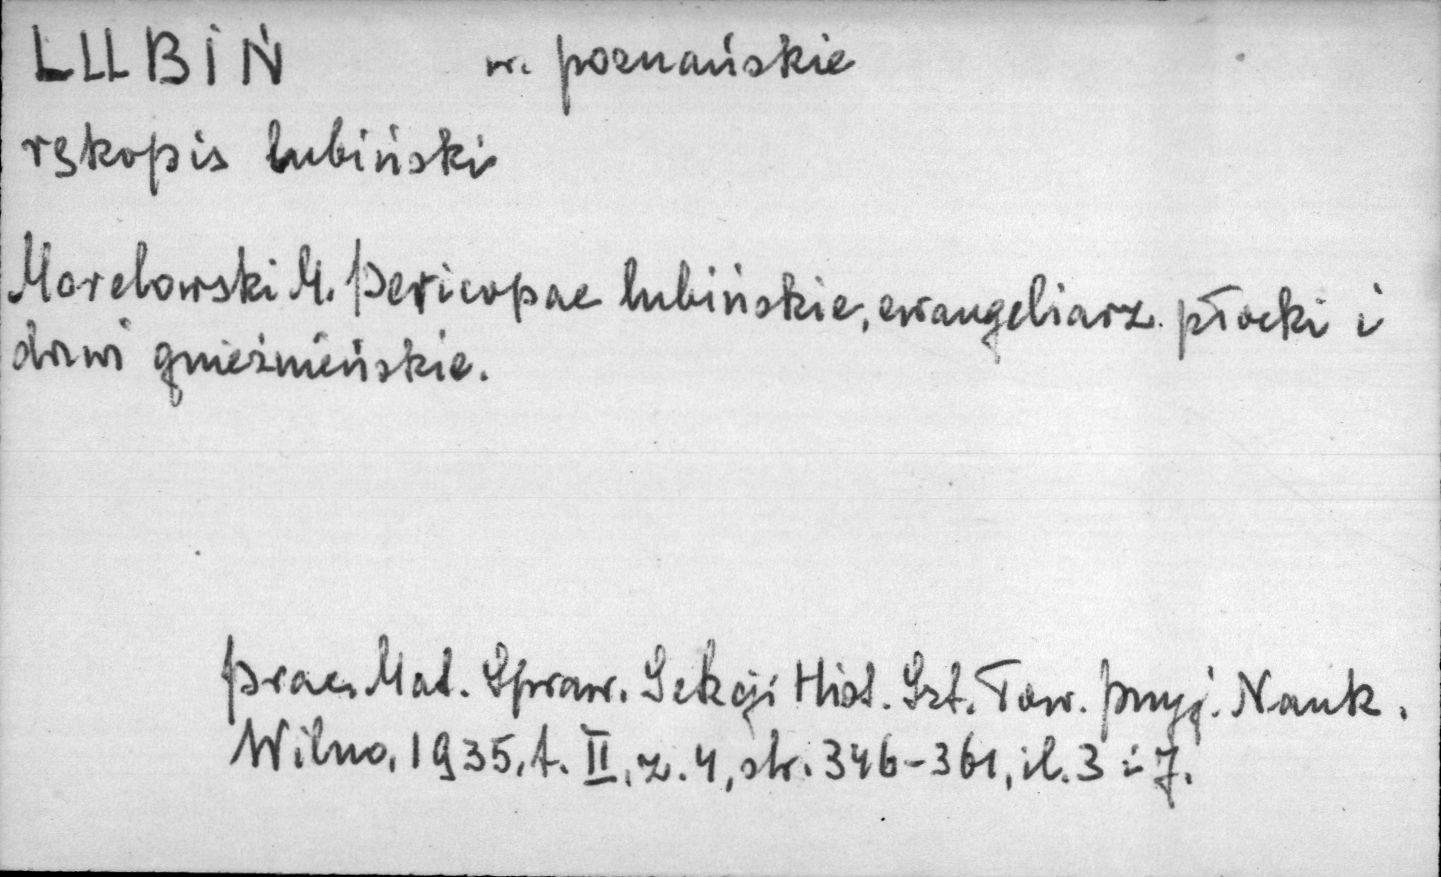 LUBIŃ w. poznańskie
rękopis lubiński
Morelowski M. Pericopae lubińskie, ewangeliarz płocki i
drzwi gnieźnieńskie.
Prace Mat. Spraw. Sekcji Hist. Szt. Tow. Przyj. Nauk.
Wilno, 1935, t. II, z. 4, str. 346-361, il. 3 i 7.